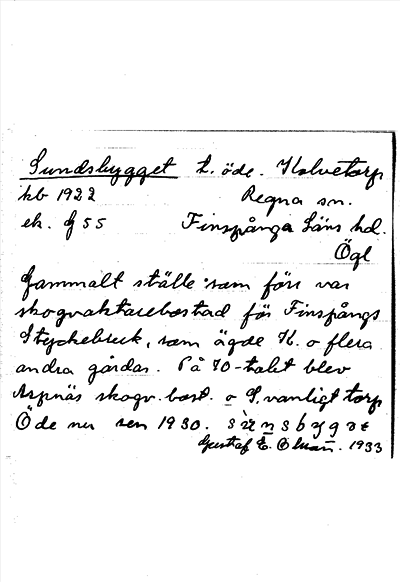 Sundsbygget t. öde. Kolvetorp
kb 1922 Regna sn.
ek. J 55 Finspånga Läns hd.
Ögl
Gammalt ställe som förr var
skogvaktarebostad för Finspångs
Styckebruk, som ägde K. o flera
andra gårdar. På 70-talet blev
Aspnäs skogv. bost. o S. vanligt torp
Öde nu sen 1930.
Gustaf E. 1933